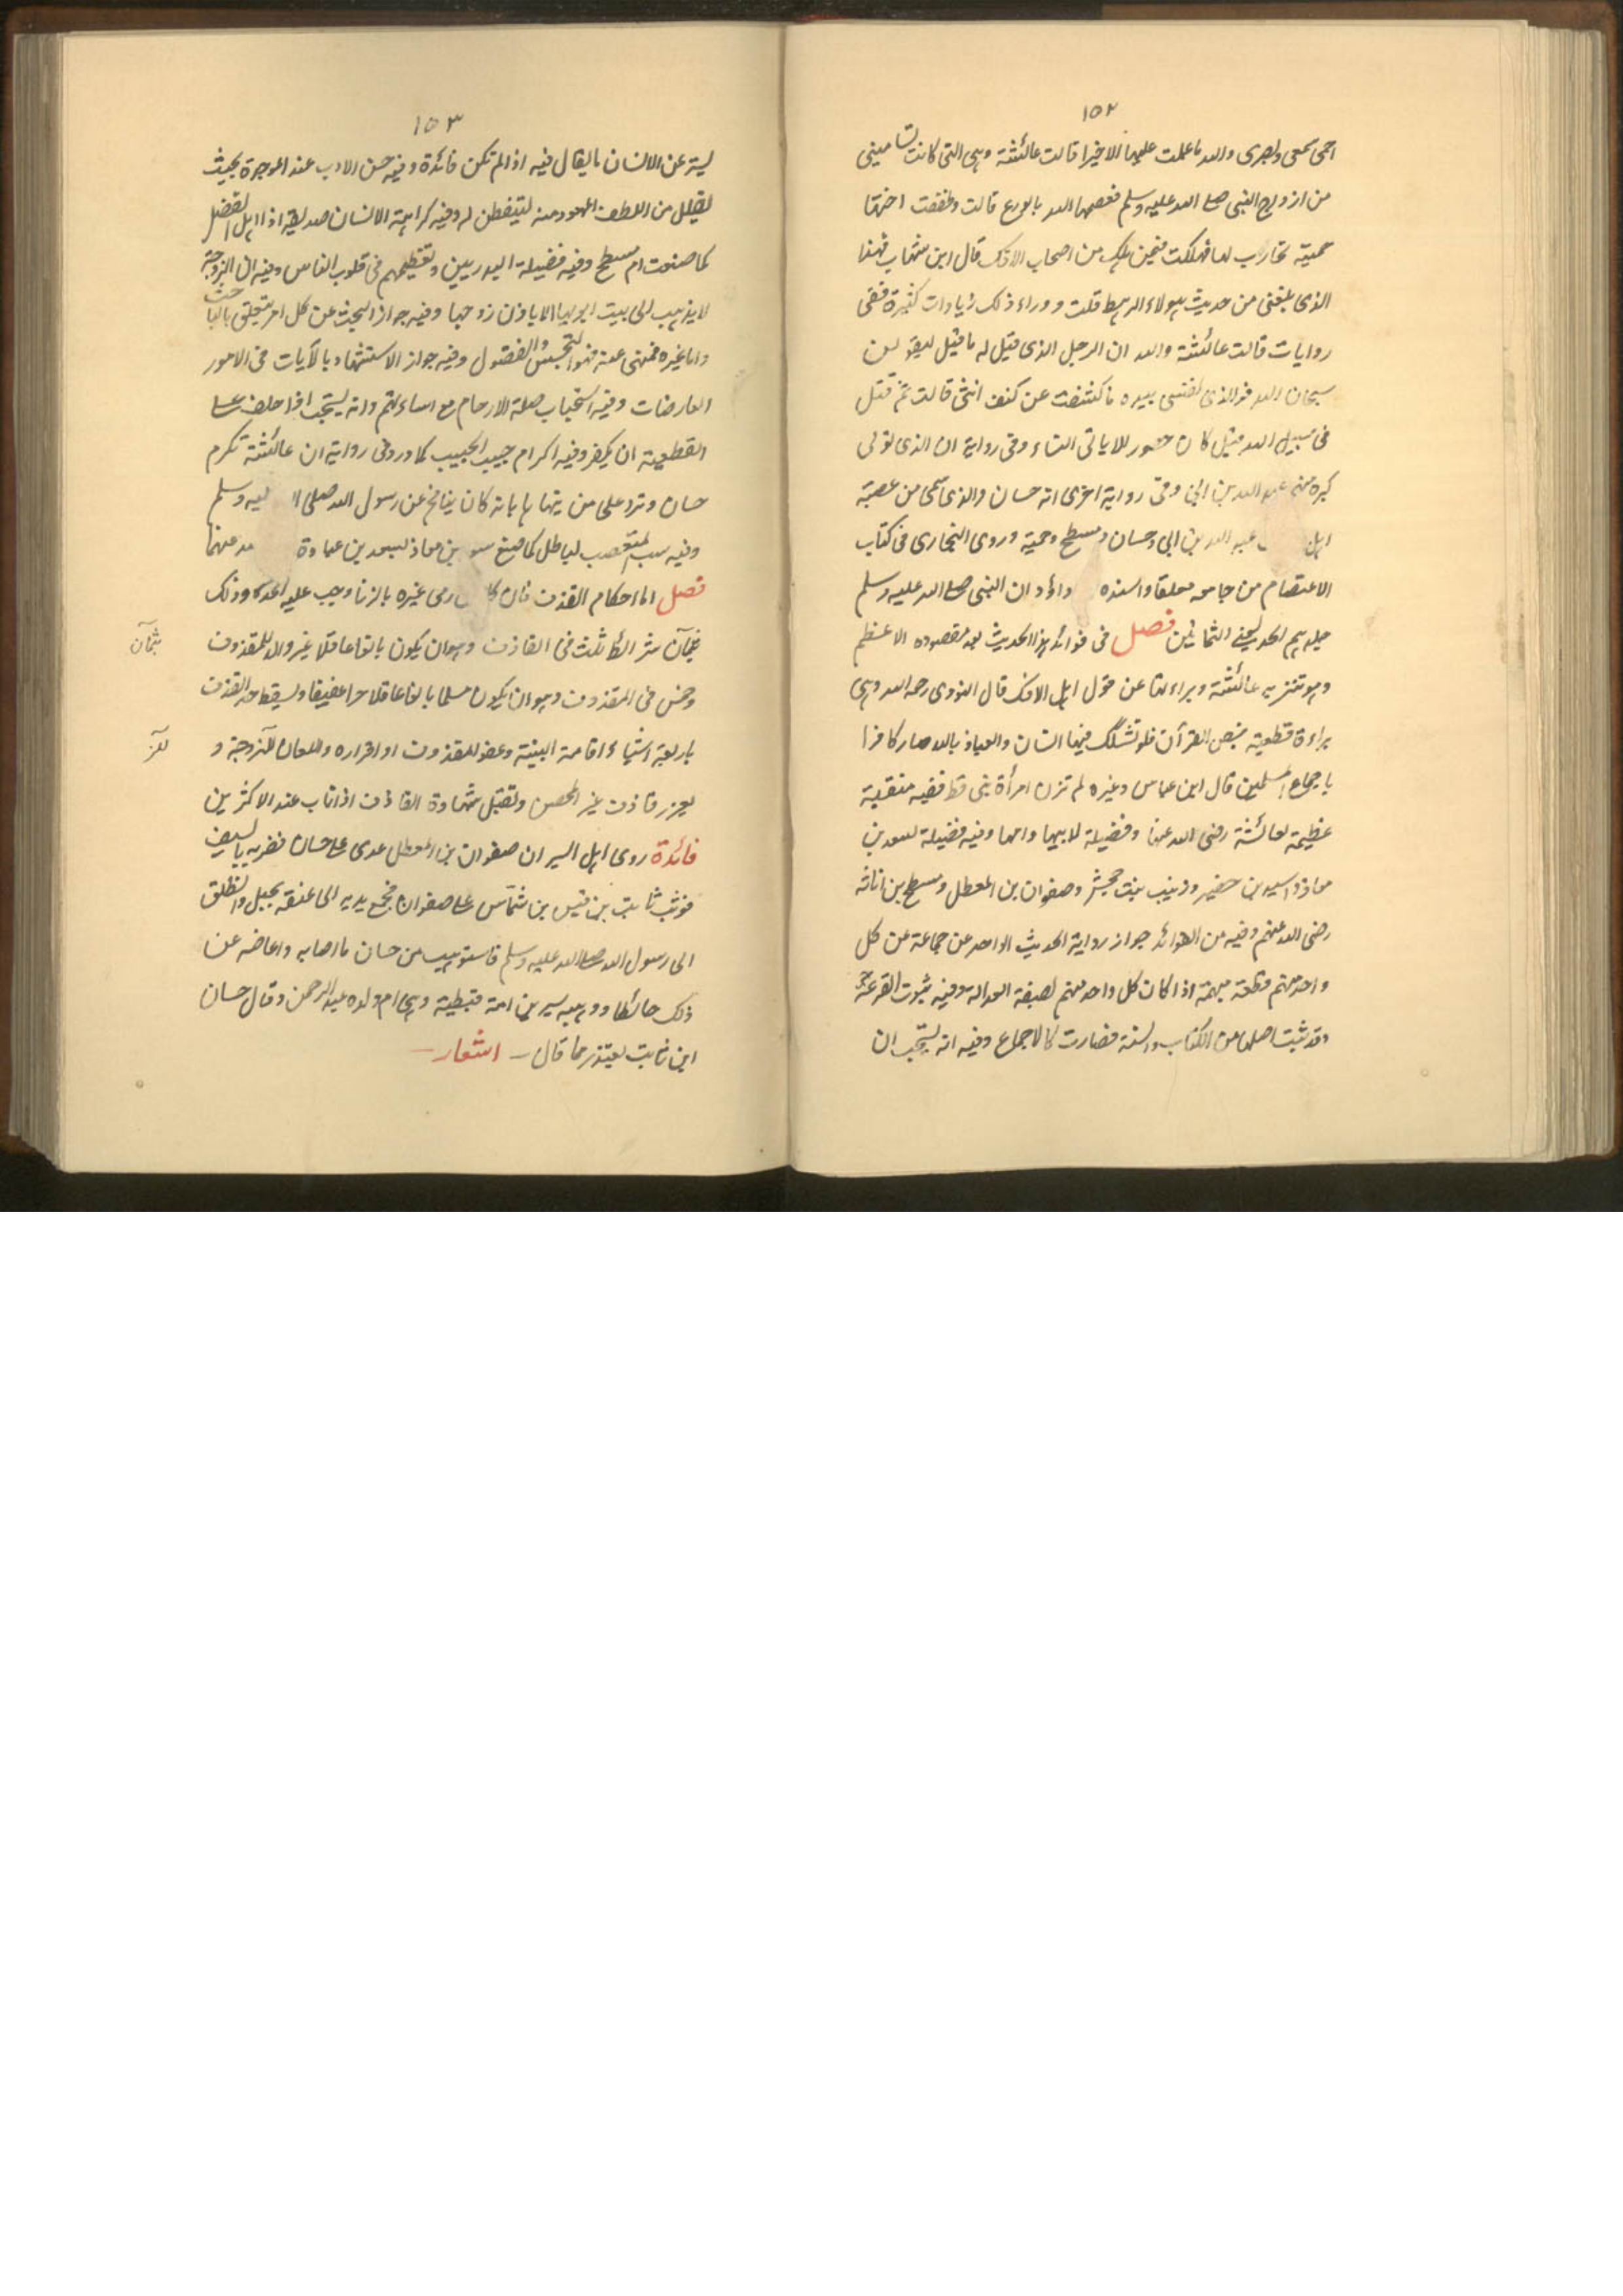 ١٥٢
احمى سمعى وبصرى والله ما علمت عليها الا خيرا قالت عائشة وهى التى كانت تسامينى
من ازواج النبى صلى الله عليه وسلم فعصمها الله بالورع قالت وطفقت اختها
حمية تحارب لها فهلكت فيمن هلك من اصحاب الافك قال ابن شهاب فهذا
الذى بلغنى من حديث هولاء الرهط قلت ووراء ذلك زيادات كثيرة ففى
روايات قالت عائشة والله ان الرجل الذى قيل له ما قيل ليقولن
سبحان الله فوالذى نفسى بيده ما كشفت عن كنف انثى قالت ثم قتل
فى سبيل الله قيل كان حصور للاياتى النساء وفى رواية ان الذى تولى
كبره منهم عبد الله بن ابى وفى رواية اخرى انه حسان والذى سمى من عصبة
اهل عبد الله بن ابى وحسان ومسطح وحمية وروى البخارى فى كتاب
الاعتصام من جامعه معلقا واسنده داؤد ان النبى صلى الله عليه وسلم
جلدهم الحد يعنى الثمانين فصل فى فوائد هذا الحديث بعد مقصوده الاعظم
وهو تنزيه عائشة وبراءتها عن قول اهل الافك قال النووى رحمه الله وهى
براءة قطعية بنص القرآن فلو تشكك فيها انسان والعياذ بالله صار كافرا
باجماع المسلمين قال ابن عباس وغيره لم تزن امرأة نبى قط ففيه منقبة
عظيمة لعائشة رضى الله عنها وفضيلة لابيها وامها وفيه فضيلة لسعد بن
معاذ واسيد بن حضير وزينب بنت جحش وصفوان بن المعطل ومسطح بن اثاثه
رضى الله عنهم وفيه من الفوائد جواز رواية الحديث الواحد عن جماعة عن كل
واحد منهم قطعة مبهمة اذا كان كل واحد منهم لصفة العدالة وفيه ثبوت القرعة
وقد ثبت اصلها من الكتاب والسنة فصارت كالاجماع وفيه انه يستحب ان
١٥٣
يستر عن الانسان ما يقال فيه اذا لم تكن فائدة وفيه حسن الادب عند الموجرة بحيث
يقلل من اللطف المعهود منه ليتفطن له وفيه كراهة الانسان صديقه اذا اهل الفضل
كما صنعت ام مسطح وفيه فضيلة البدريين وتعظيمهم فى قلوب الناس وفيه ان الزوجة
لا يذهب الى بيت ابويها الا باذن زوجها وفيه جواز البحث عن كل امر يتعلق بالباحث
واما غيره فمنهى عنه فهو التجسس والفضول وفيه جواز الاستشهاد بالآيات فى الامور
العارضات وفيه استحباب صلة الارحام مع اساءتهم وانه يستحب اذا حلف على
القطعية ان يكفر وفيه اكرام حبيب الحبيب كما ورد فى رواية ان عائشة تكرم
حسان وترد على من ينها بانه كان ينافح عن رسول الله صلى ا ليه وسلم
وفيه سب المتعصب لباطل كما صنع بن معاذ لسعد بن عبادة عنهما
فصل اما احكام القذف فان رمى غيره بالزنا وجب عليه الحد وذلك
ثمان شرائط ثلث فى القاذف وهو ان يكون بالغا عاقلا غير والد للمقذوف
وخمس فى المقذوف وهو ان يكون مسلما بالغا عاقلا حرا عفيفا ويسقط حد القذف
باربعة اشياء اقامة البينة وعفو المقذوف او اقراره واللعان للزوجة و
يعزر قاذف غير المحصن وتقبل شهادة القاذف اذا تاب عند الاكثرين
فائدة روى اهل السير ان صفوان بن المعطل عدى على حسان فضربه بالسيف
فوثب ثابت بن قيس بن شماس على صفوان فجمع يديه الى عنقه بحبل وانطلق
الى رسول الله صلى الله عليه وسلم فاستوهب من حسان ما اصابه واعاضه عن
ذلك حائطا ووهبه سيرين امة قبطية وهى ام ولده عبد الرحمن وقال حسان
ابن ثابت يعتذر مما قال اشعار
ثمان